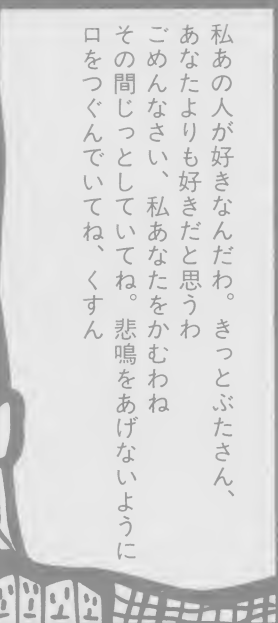 私あの人が好きなんだわ。きっとぶたさん、
あなたよりも好きだと思うわ
ごめんなさい、私あなたをかむわね
その間じっとしていてね。悲鳴をあげないように
口をつぐんでいてね、くすん